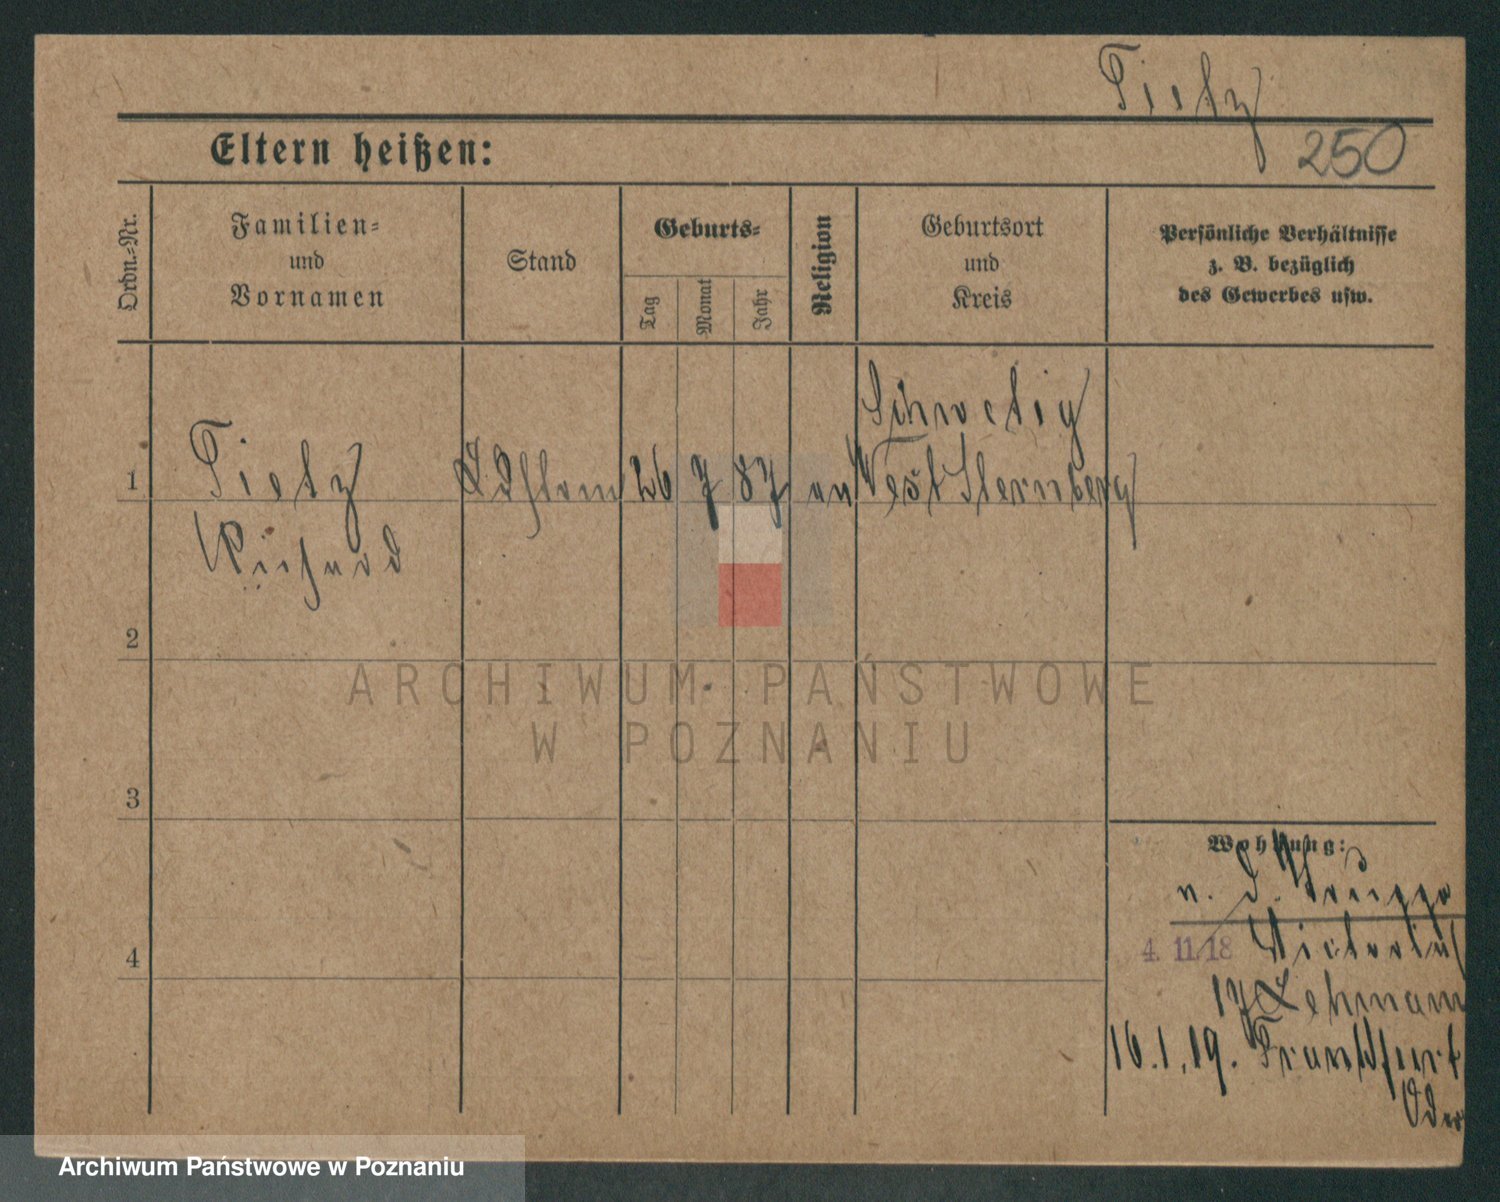 Tietz
Eltern heißen:
250
Ordn.-Nr.
Familien-
und
Vornamen
Stand
Geburts-
Tag
Monat
Jahr
Religion
Geburtsort
und
Kreis
Persönliche Verhältnisse
z. B. bezüglich
des Gewerbes usw.
1
Tietz
Richard
26 7 87
ev
Schwetig
West Sternberg
2
3
4
Wohnung:
v. d.
4. 11. 18
17 Lehmann
16.1.19. Frankfurt
Oder
ARCHIWUM PAŃSTWOWE
W POZNANIU
Archiwum Państwowe w Poznaniu